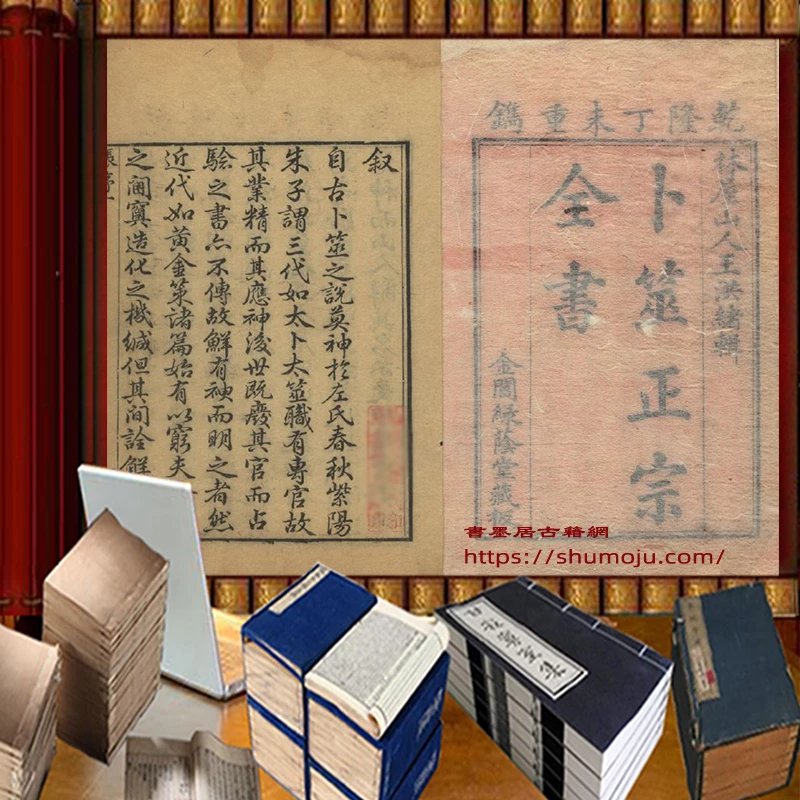 乾隆丁未重鐫
林屋山人王洪緒輯
卜筮正宗
全書
金閶綠蔭堂藏板
書墨居古籍網
https://shumoju.com/
叙
自古卜筮之說莫神於左氏春秋紫陽
朱子謂三代如太卜太筮職有專官故
其業精而其應神後世既廢其官而占
驗之書亦不傳故鮮有神而明之者然
近代如黃金策諸篇始有以窮夫
之閫寘造化之機緘但其間詮解